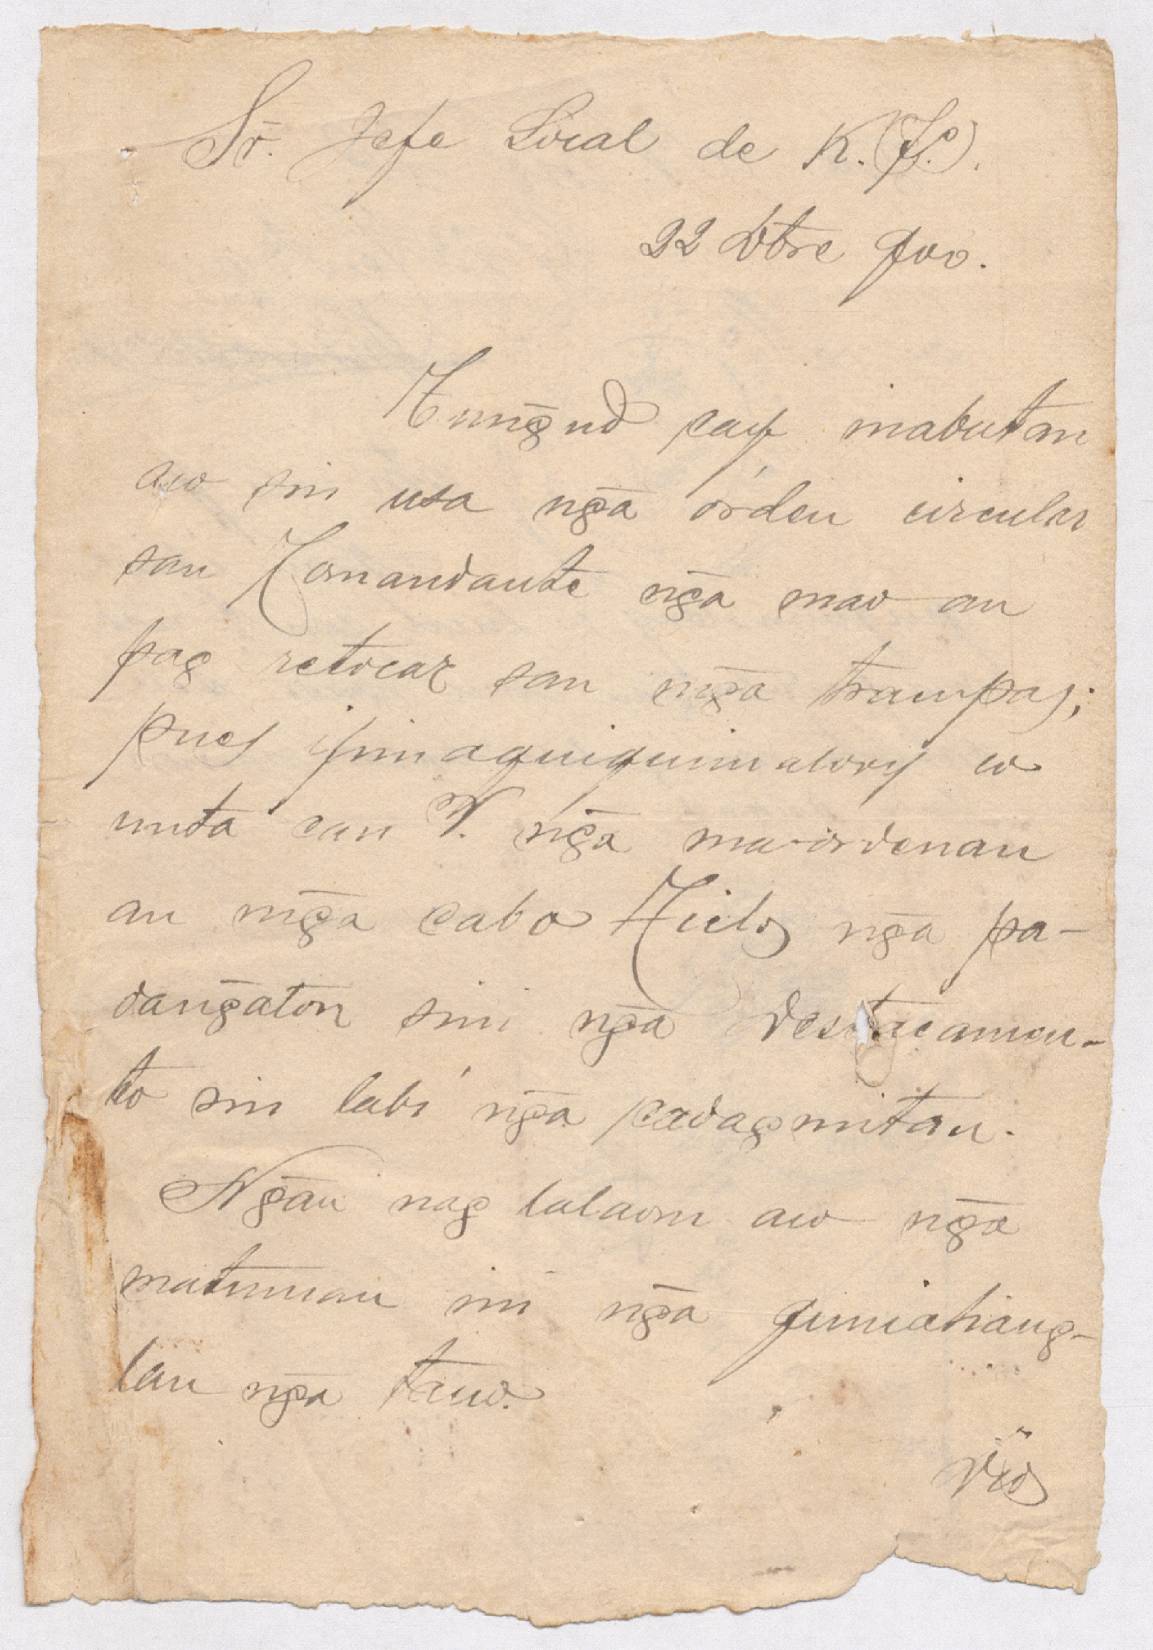 Sr. Jefe Local de K. (J.C.).
22 Obre 900.
Tungud cay inabutan
aco sin usa nga órden circular
san Comandante nga mao an
pag retocar san mga trampas;
pues iguinaquiquimalooy co
unta can V. nga ma-ordenan
an mga cabo nga pa-
dangaton sini nga destacamen-
to sin labí nga padagmitan.
Ngan nag lalaom aco nga
matuman ini nga guiniahang-
lan nga tauo.